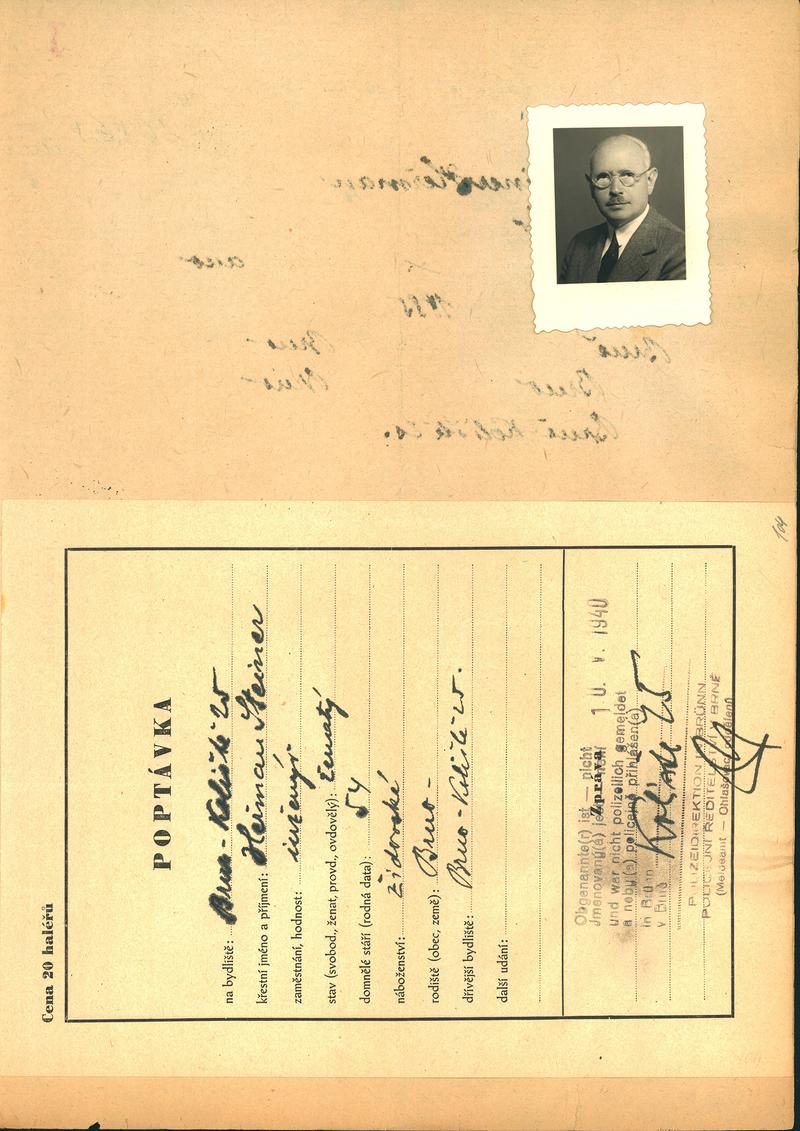 Cena 20 haléřů
POPTÁVKA
na bydliště: Brno-Koliště 25
křestní jméno a příjmení: Heřman Steiner
zaměstnání, hodnost: inženýr
stav (svobod., ženat, provd., ovdovělý): ženatý
domnělé stáří (rodná data): 54
náboženství: židovské
rodiště (obec, země): Brno-
dřívější bydliště: Brno-Koliště 25.
další udání:
Zpráva
10. V. 1940
Obgenannte(r) ist — nicht
Jmenovaný(á) je
und war nicht polizeilich gemeldet
a nebyl(a) policejně přihlášen(a)
in Brünn
v Brně
Koliště 25
POLIZEIDIREKTION IN BRÜNN
POLICEJNÍ ŘEDITELSTVÍ V BRNĚ
(Meldeamt — Ohlašovací oddělení)
104